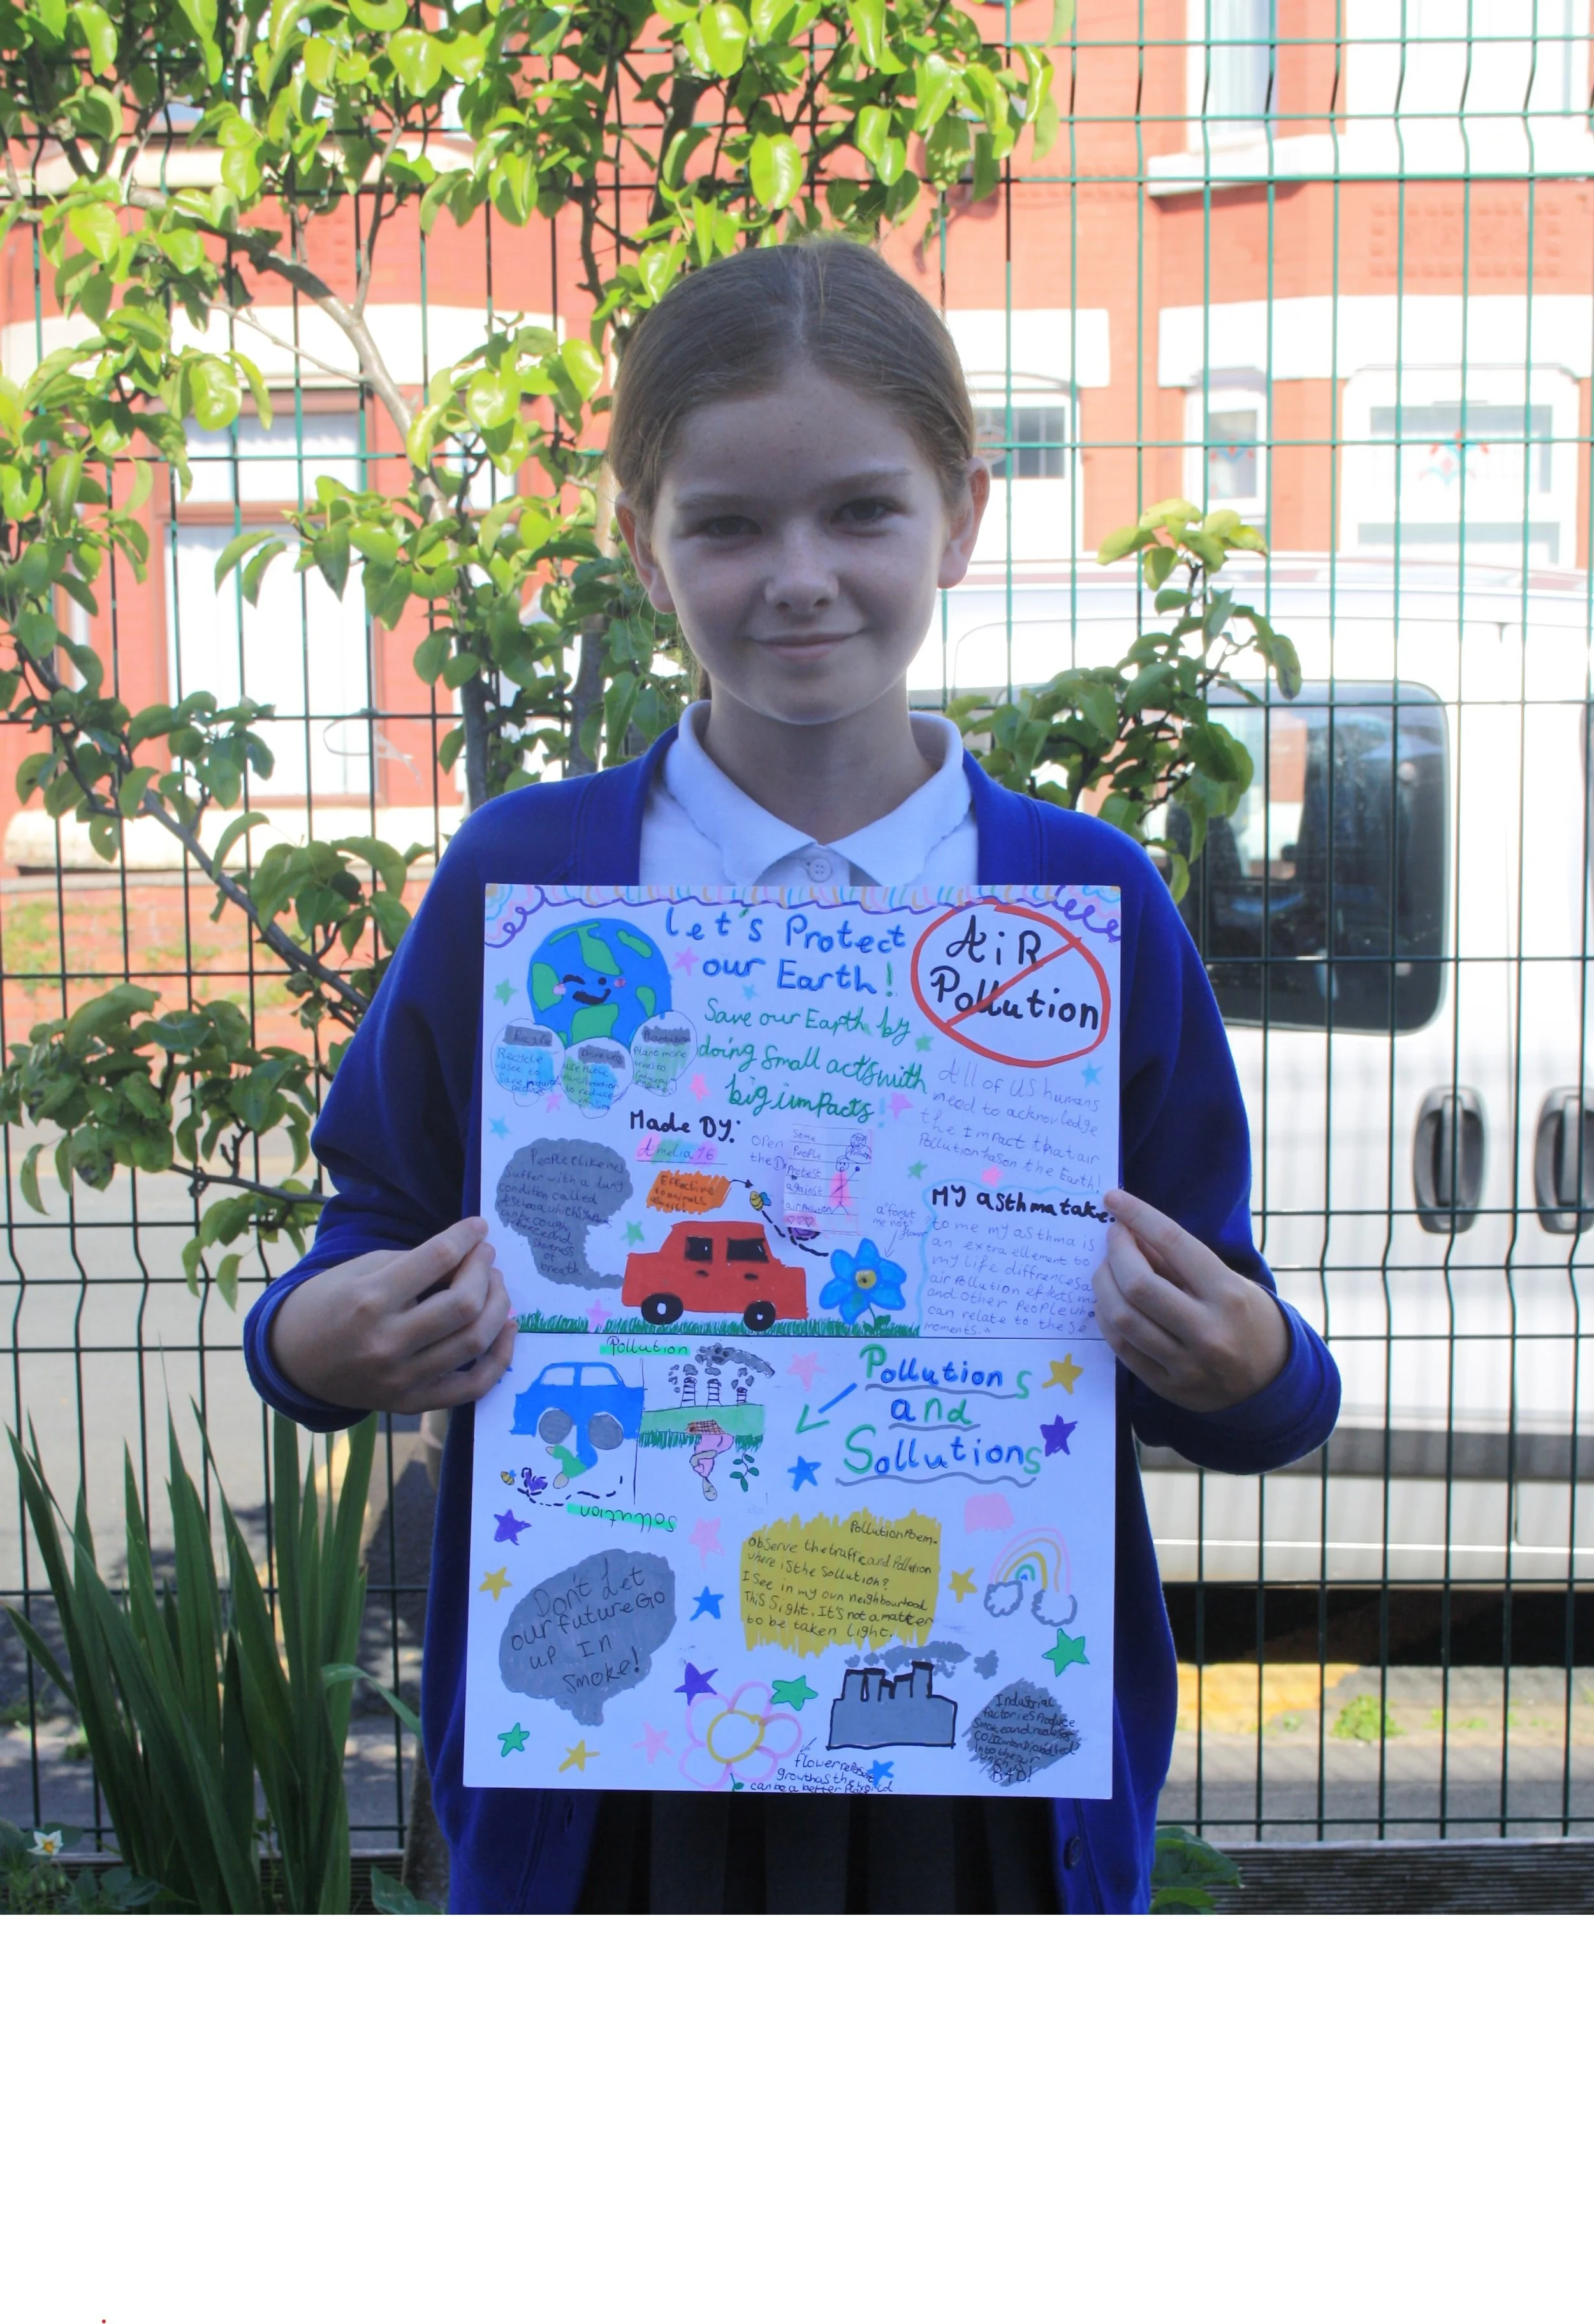 Let's Protect
our Earth!
AiR
Pollution
Save our Earth by
doing small acts with
big impacts!
Recycle
All of us humans
need to acknowledge
the impact that air
Pollution has on the Earth!
Made By:
Amelia Y6
open
the
Some
People
Protest
against
air Pollution
People (like me)
suffer with a lung
condition called
shortness
of
breath.
Effective
to animals
a forget
me not
flower
My asthma take:
to me my asthma is
an extra ellement to
my life diffrences a
air Pollution effects me
and other People who
can relate to these
moments.
Pollution
Sollution
Pollutions
and
Sollutions
Pollution Poem-
Observe the traffic and Pollution
where is the Sollution?
I See in my own neighbourhood
This Sight. It's not a matter
to be taken light.
Don't Let
our future Go
up In
Smoke!
Industrial
factories Produce
Smoke and
into the air
BAD!
flower
growth as the world
can be a better Place